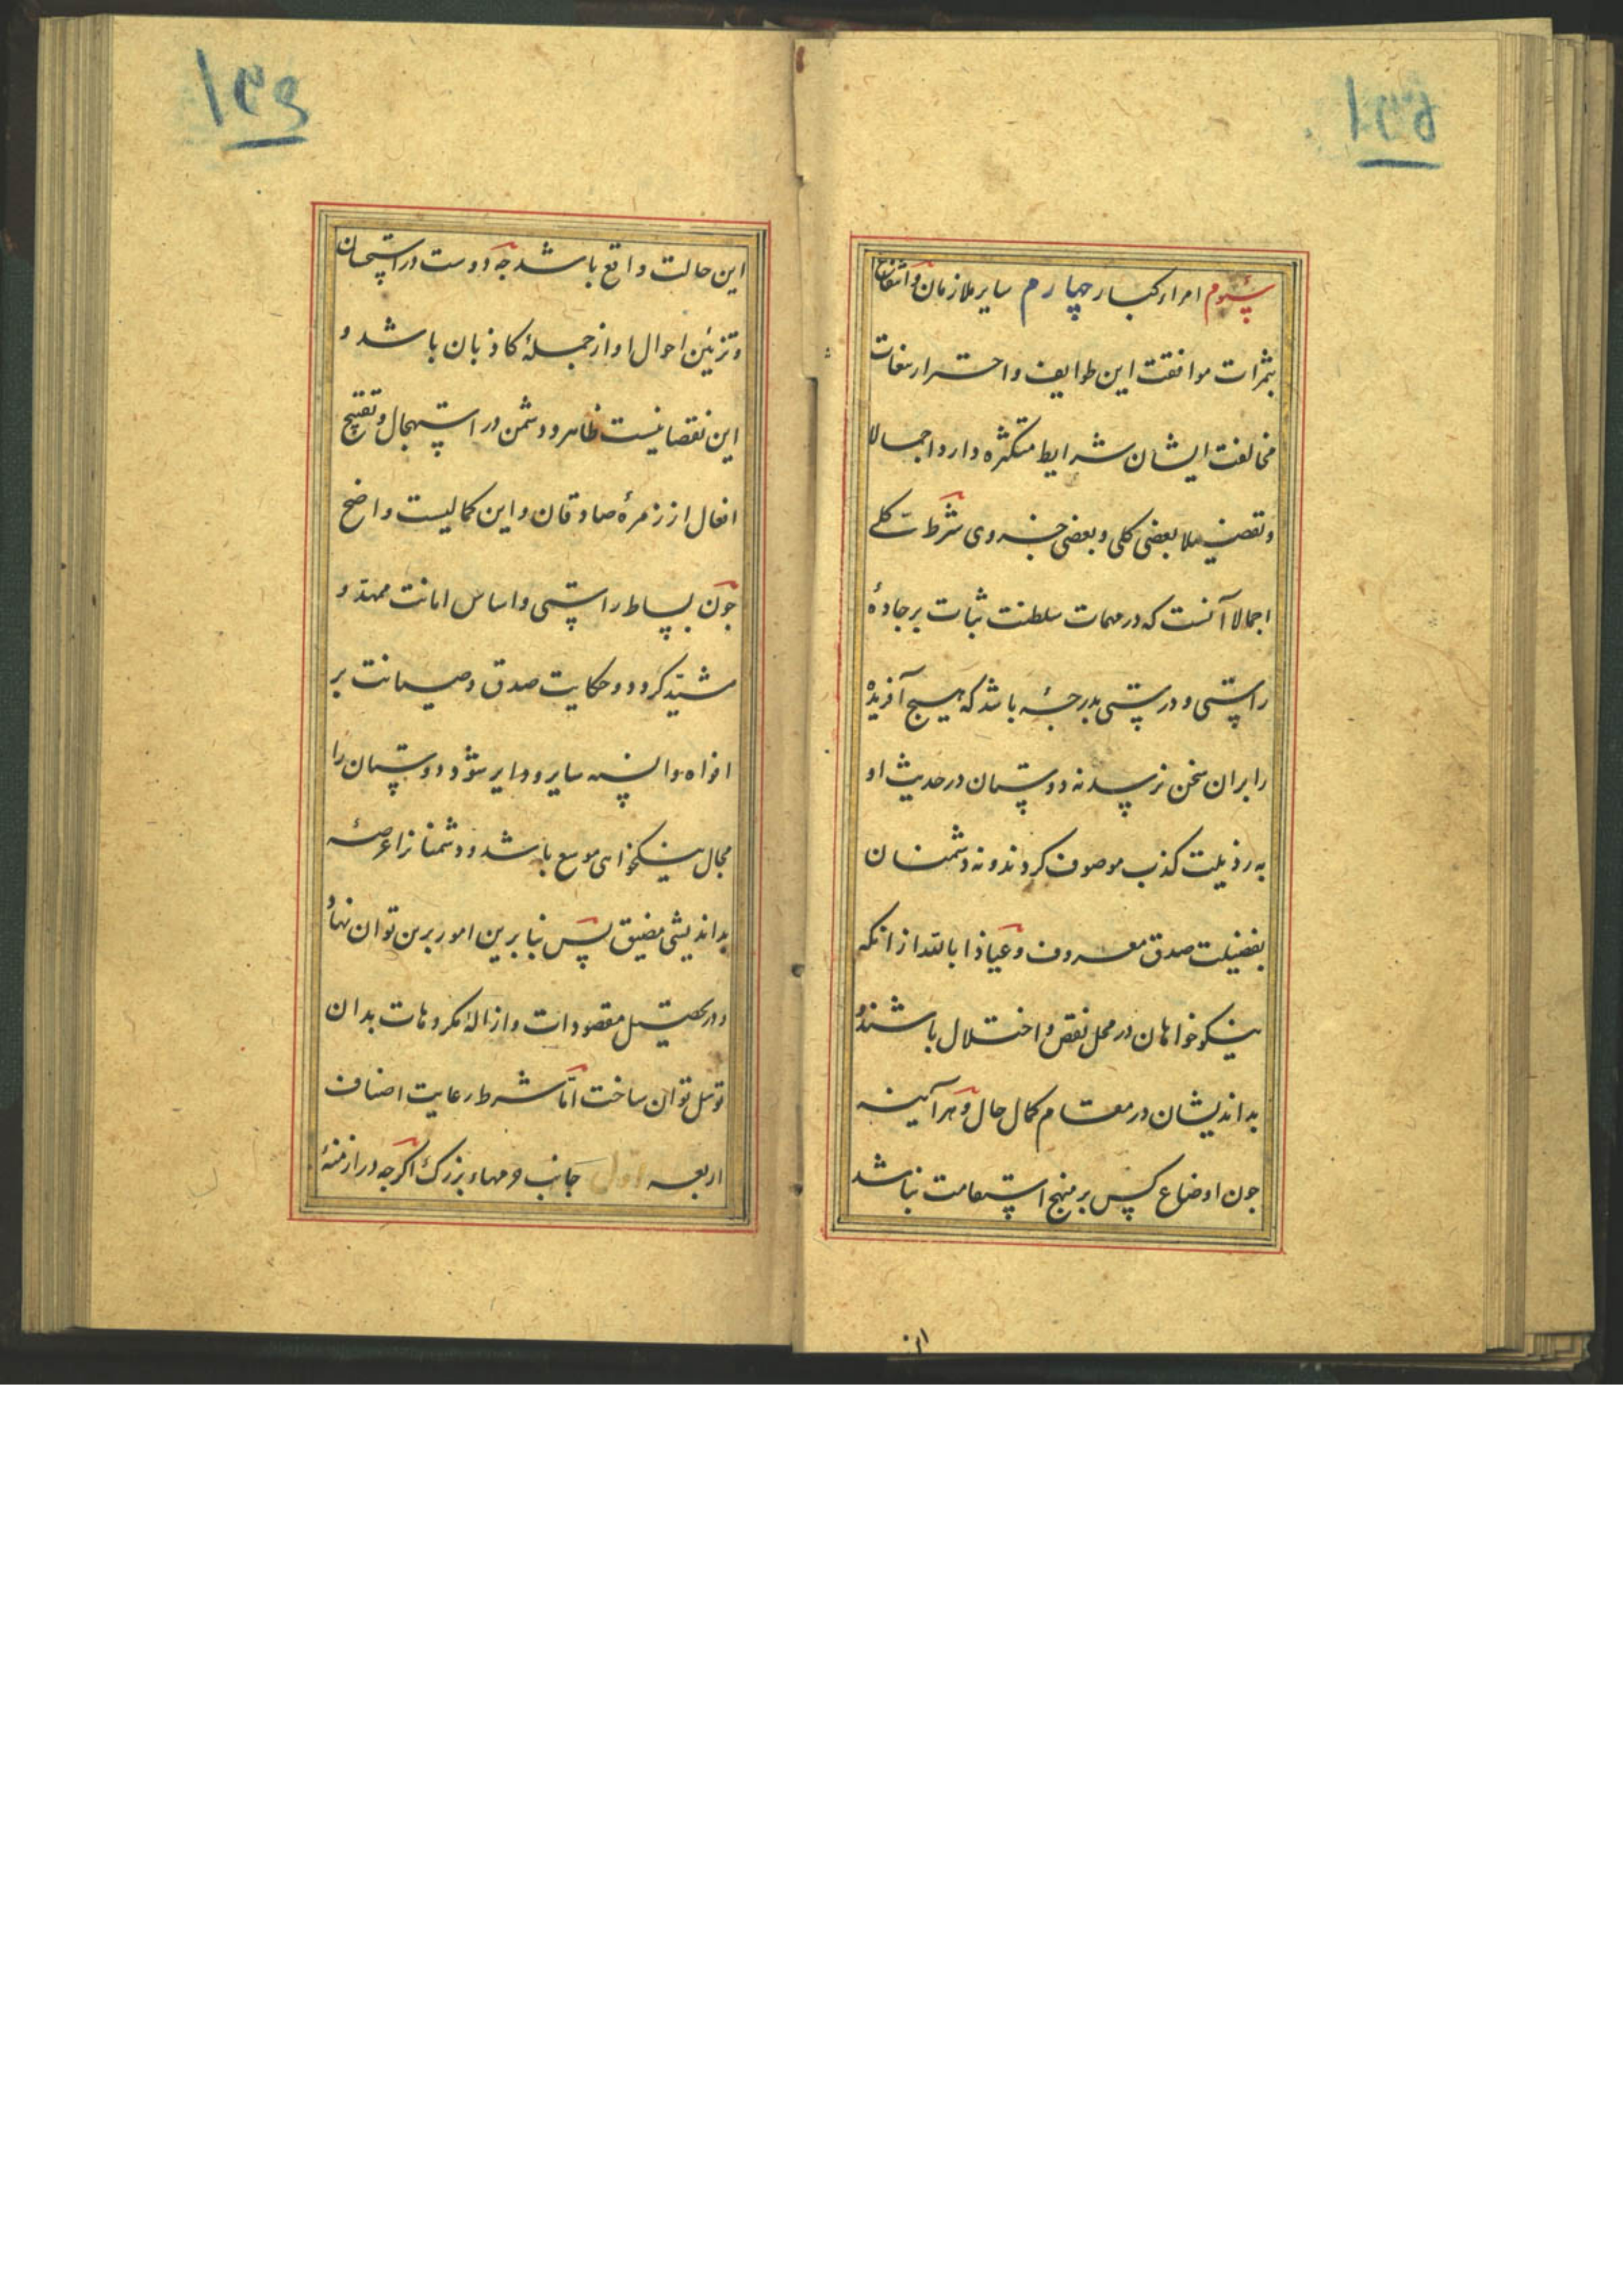 ۱۳۵
سیوم امراء کبار چهارم سایر ملازمان و انتفاع
بثمرات موافقت این طوایف و احتراز از تبعات
مخالفت ایشان شرایط متکثره دارد اجمالا
و تفصیلا بعضی کلی و بعضی جزوی شرط کلی
اجمالا آنست که در مهمات سلطنت ثبات بر جادهٔ
راستی و درستی بدرجهٔ باشد که هیچ آفریده
را بران سخن نرسد نه دوستان در حدیث او
به رذیلت کذب موصوف کردند و نه دشمنان
بفضیلت صدق معروف و عیاذا بالله از انکه
نیکوخواهان در محل نقص و اختلال باشند و
بداندیشان در مقام کمال حال و هر آینه
جون اوضاع کس بر منهج استقامت نباشد
۱۳۶
این حالت واقع باشد جه دوست در استحسان
و تزیین احوال او از جملهٔ کاذبان باشد و
این نقصانیست ظاهر و دشمن در استهجال و تقبیح
افعال از زمرهٔ صادقان و این کمالیست واضح
جون بساط راستی و اساس امانت ممهد و
مشید کردد و حکایت صدق و صیانت بر
افواه و السنه سایر و دایر شود دوستان را
مجال نیکخواهی موسع باشد و دشمنانرا عرصهٔ
بداندیشی مضیق پس بنا برین امور برین توان نهاد
و در تحصیل مقصودات و ازالهٔ مکروهات بدان
توسل توان ساخت اما شرط رعایت اصناف
اربعه اول جانب و مهاء بزرک اکرجه در ازمنهٔ